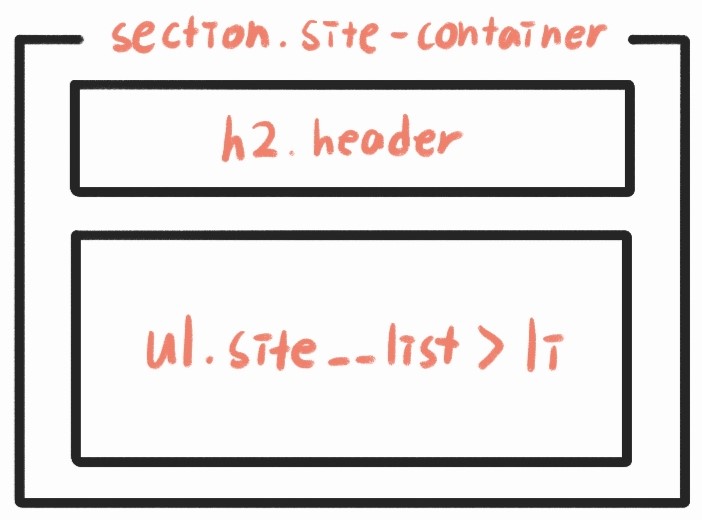 section.site-container
h2.header
ul.site__list > li